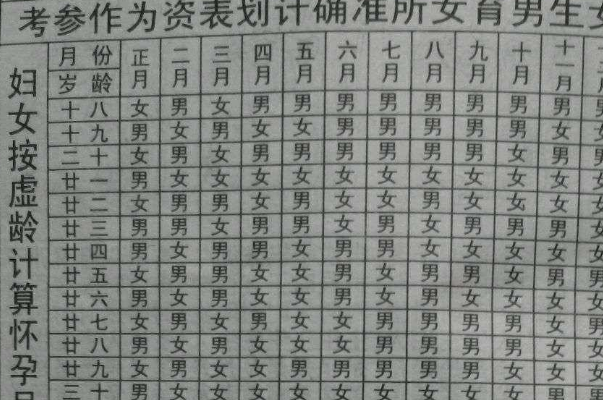 女生男育女所准确计划表资为作参考
妇女按虚龄计算怀孕
月份 正月 二月 三月 四月 五月 六月 七月 八月 九月 十月 十一月
岁龄
十八 女 男 女 男 男 男 男 男 男 男 男 男
十九 男 女 男 女 女 男 男 男 男 男 女 女
二十 女 男 女 男 男 男 男 男 男 女 男 男
廿一 男 女 女 女 女 女 女 女 女 女 女 女
廿二 女 男 男 女 男 女 女 男 女 女 女 女
廿三 男 男 女 男 男 女 男 女 男 男 男 女
廿四 男 女 男 男 女 男 男 女 女 女 女 女
廿五 女 男 男 女 女 男 女 男 男 女 男 男
廿六 男 女 男 女 女 男 女 男 女 女 女 女
廿七 女 男 女 男 女 女 男 男 男 男 女 男
廿八 男 女 男 女 女 女 男 男 男 男 女 女
廿九 女 男 女 女 男 男 男 男 男 女 女 女
三十 男 女 女 女 女 女 女 女 女 女 男 男